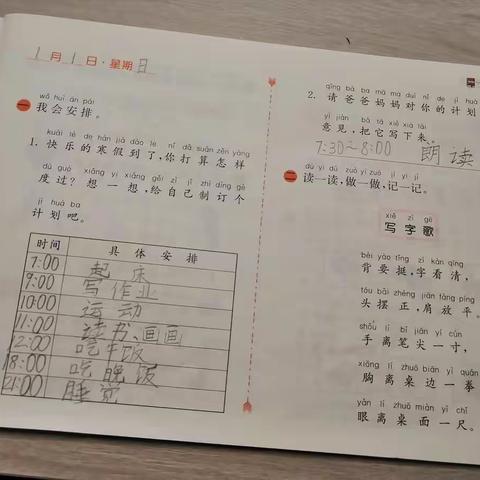 1月1日·星期日
wǒ huì ān pái
一 我会安排。
kuài lè de hán jià dào le nǐ dǎ suàn zěn yàng
1. 快乐的寒假到了,你打算怎样
dù guò xiǎng yi xiǎng gěi zì jǐ zhì dìng gè
度过?想一想,给自己制订个
jì huà ba
计划吧。
时间 具体安排
7:00 起床
9:00 写作业
10:00 运动
11:00 读书、画画
12:00 吃午饭
18:00 吃晚饭
21:00 睡觉
qǐng bà ba mā ma duì nǐ de jì huà
2. 请爸爸妈妈对你的计划
yì jiàn bǎ tā xiě xià lái
意见,把它写下来。
7:30~8:00 朗读
dú yi dú zuò yi zuò jì yi jì
二 读一读,做一做,记一记。
xiě zì gē
写字歌
bèi yào tǐng zì kàn qīng
背要挺,字看清,
tóu bǎi zhèng jiān fàng píng
头摆正,肩放平。
shǒu lí bǐ jiān yí cùn
手离笔尖一寸,
xiōng lí zhuō biān yì quán
胸离桌边一拳
yǎn lí zhuō miàn yì chǐ
眼离桌面一尺。